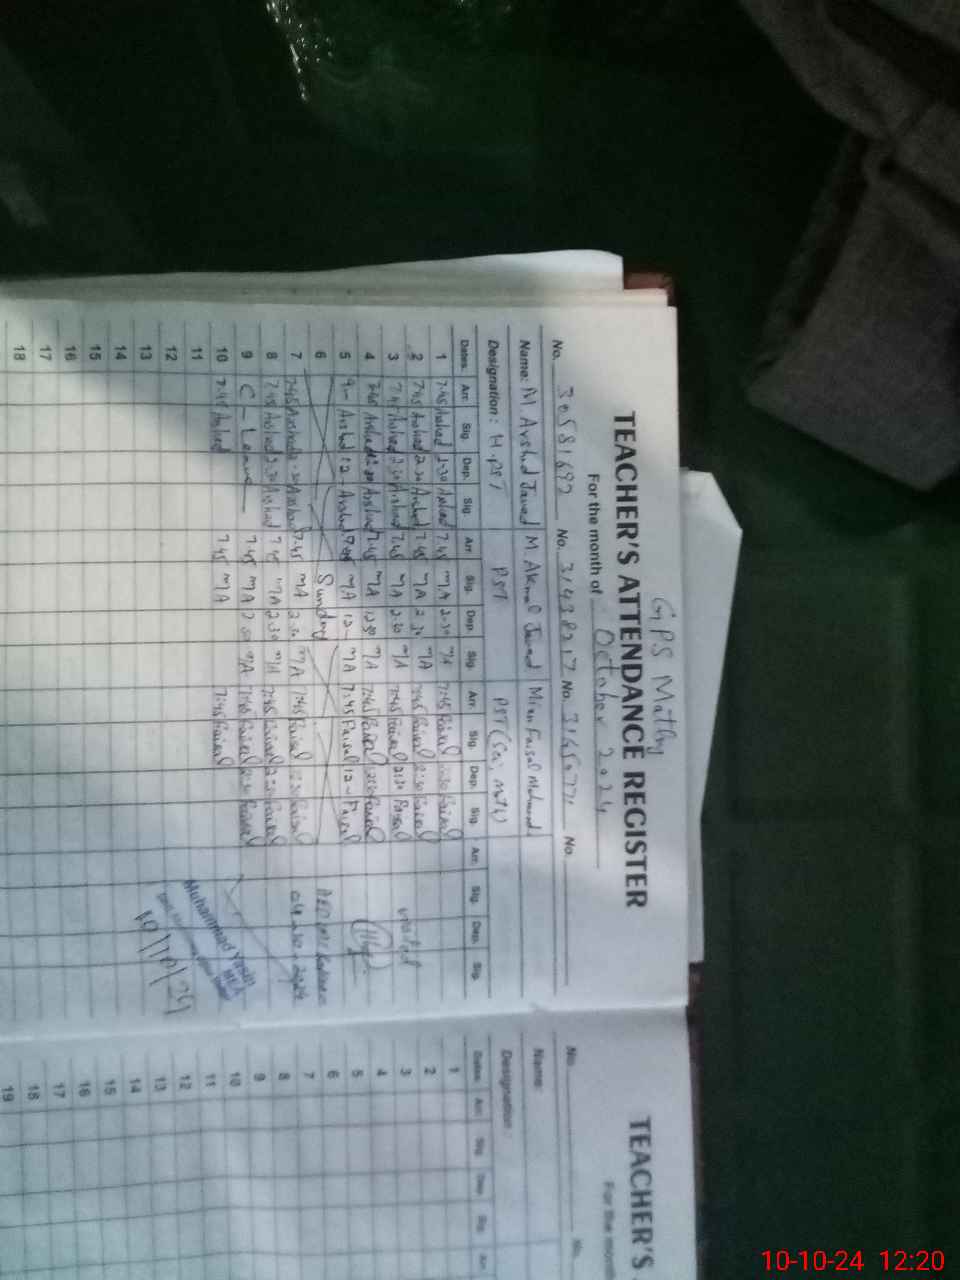 GPS
TEACHER'S ATTENDANCE REGISTER
For the month of October 2024
No. 30581692 No. 31438217 No. No.
Name: M. Arshad Javed M. Akmal Javed Mian Faisal Mehmood
Designation: H.PST PST PST
Dates. Arr. Sig. Dep. Sig. Arr. Sig. Dep. Sig. Arr. Sig. Dep. Sig. Arr. Sig. Dep. Sig.
1 7:45 Arshad 2:30 Arshad 7:45 MA 2:30 MA 7:45 Faisal 2:30 Faisal
2 7:45 Arshad 2:30 Arshad 7:45 MA 2:30 MA 7:45 Faisal 2:30 Faisal
3 7:45 Arshad 2:30 Arshad 7:45 MA 2:30 MA 7:45 Faisal 2:30 Faisal
4 7:45 Arshad 12:30 Arshad 7:45 MA 12:30 MA 7:45 Faisal 12:30 Faisal
5 Arshad 12- Arshad MA 12- MA 7:45 Faisal 12- Faisal
6 Sunday
7 7:45 Arshad 2:30 Arshad 7:45 MA 2:30 MA 7:45 Faisal 2:30 Faisal
8 7:45 Arshad 2:30 Arshad 7:45 MA 2:30 MA 7:45 Faisal 2:30 Faisal
9 C-Leave 7:45 MA 2:30 MA 7:45 Faisal 2:30 Faisal
10 7:45 Arshad 7:45 MA 7:45 Faisal
11
12
13
14
15
16
17
18
Muhammad Yasin
10/10/24
TEACHER'S
For the month
No. No.
Name:
Designation:
Dates. Arr. Sig. Dep. Sig. Arr.
1
2
3
4
5
6
7
8
9
10
11
12
13
14
15
16
17
18
19
10-10-24 12:20